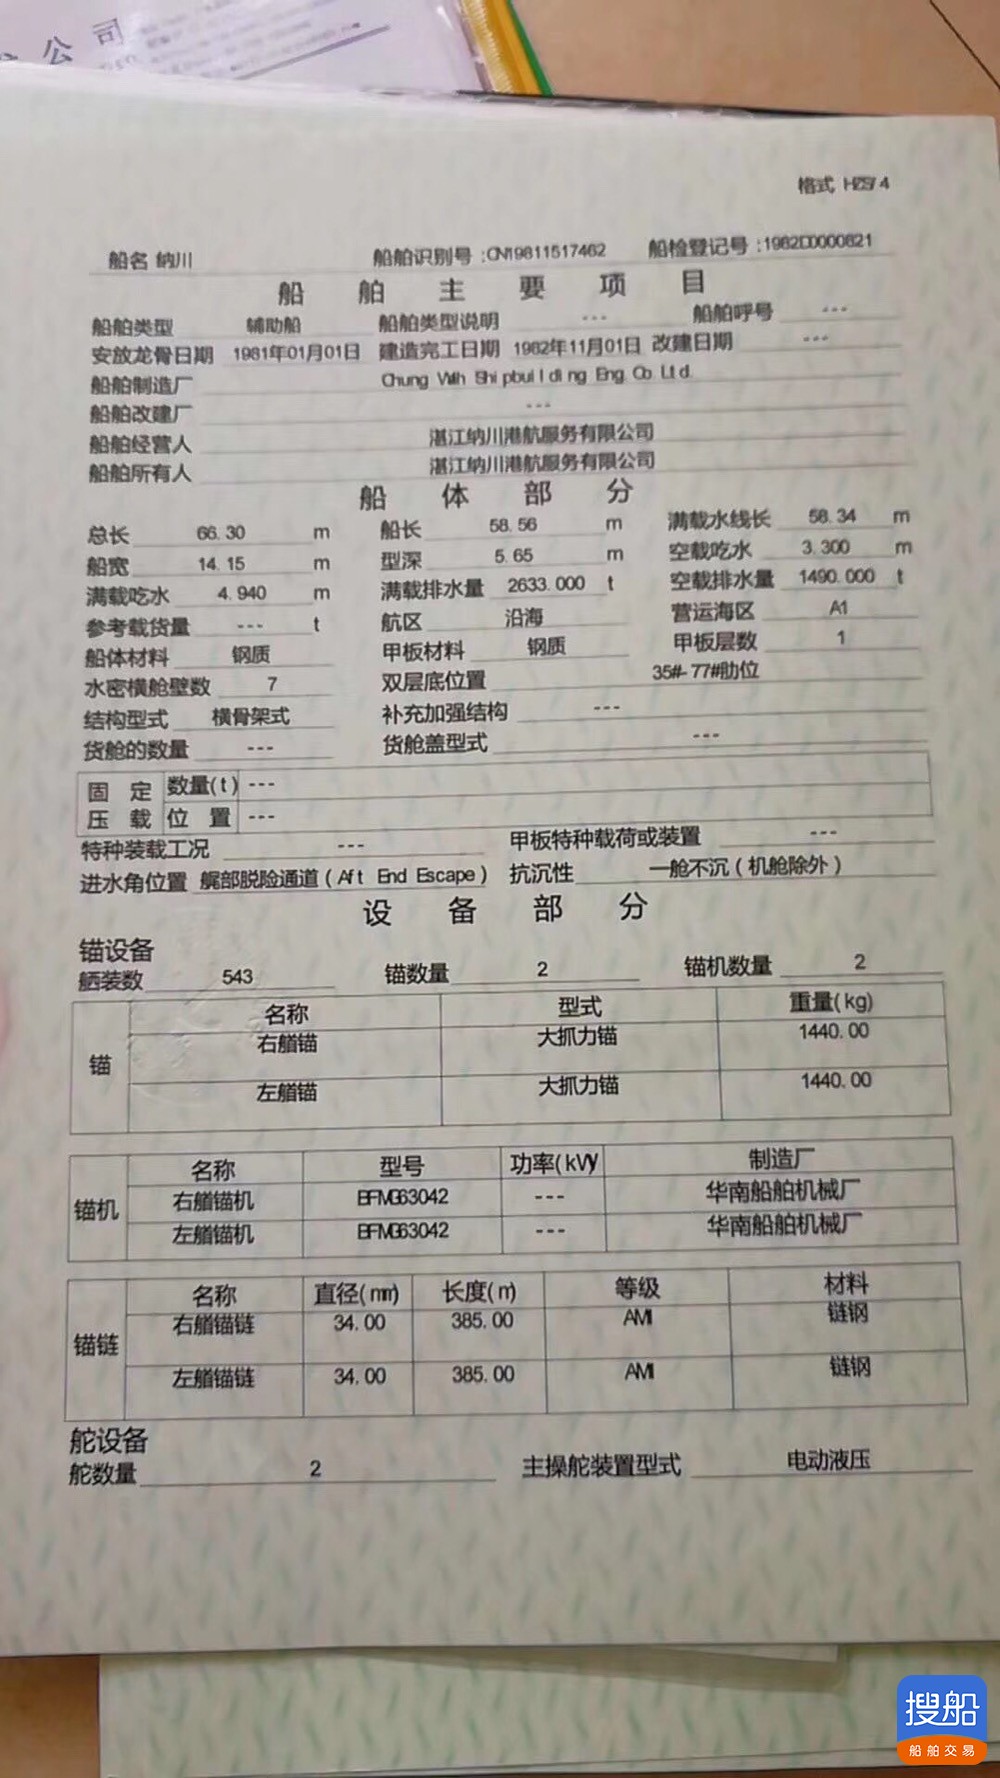 公司
格式 HZS/4
船名 纳川 船舶识别号:CN19811517462 船检登记号:1982D0000821
船舶主要项目
船舶类型 辅助船 船舶类型说明 --- 船舶呼号 ---
安放龙骨日期 1981年01月01日 建造完工日期 1982年11月01日 改建日期 ---
船舶制造厂 Chung Wah Shipbuilding Eng. Co. Ltd.
船舶改建厂 ---
船舶经营人 湛江纳川港航服务有限公司
船舶所有人 湛江纳川港航服务有限公司
船体部分
总长 66.30 m 船长 58.56 m 满载水线长 58.34 m
船宽 14.15 m 型深 5.65 m 空载吃水 3.300 m
满载吃水 4.940 m 满载排水量 2633.000 t 空载排水量 1490.000 t
参考载货量 --- t 航区 沿海 营运海区 A1
船体材料 钢质 甲板材料 钢质 甲板层数 1
水密横舱壁数 7 双层底位置 35#-77#肋位
结构型式 横骨架式 补充加强结构 ---
货舱的数量 --- 货舱盖型式 ---
固定 数量(t) ---
压载 位置 ---
特种装载工况 --- 甲板特种载荷或装置 ---
进水角位置 艉部脱险通道(Aft End Escape) 抗沉性 一舱不沉(机舱除外)
设备部分
锚设备
舾装数 543 锚数量 2 锚机数量 2
名称 型式 重量(kg)
锚
右艏锚 大抓力锚 1440.00
左艏锚 大抓力锚 1440.00
名称 型号 功率(kW) 制造厂
锚机
右艏锚机 EFMG63042 --- 华南船舶机械厂
左艏锚机 EFMG63042 --- 华南船舶机械厂
名称 直径(mm) 长度(m) 等级 材料
锚链
右艏锚链 34.00 385.00 AM1 链钢
左艏锚链 34.00 385.00 AM1 链钢
舵设备
舵数量 2 主操舵装置型式 电动液压
搜船
船舶交易